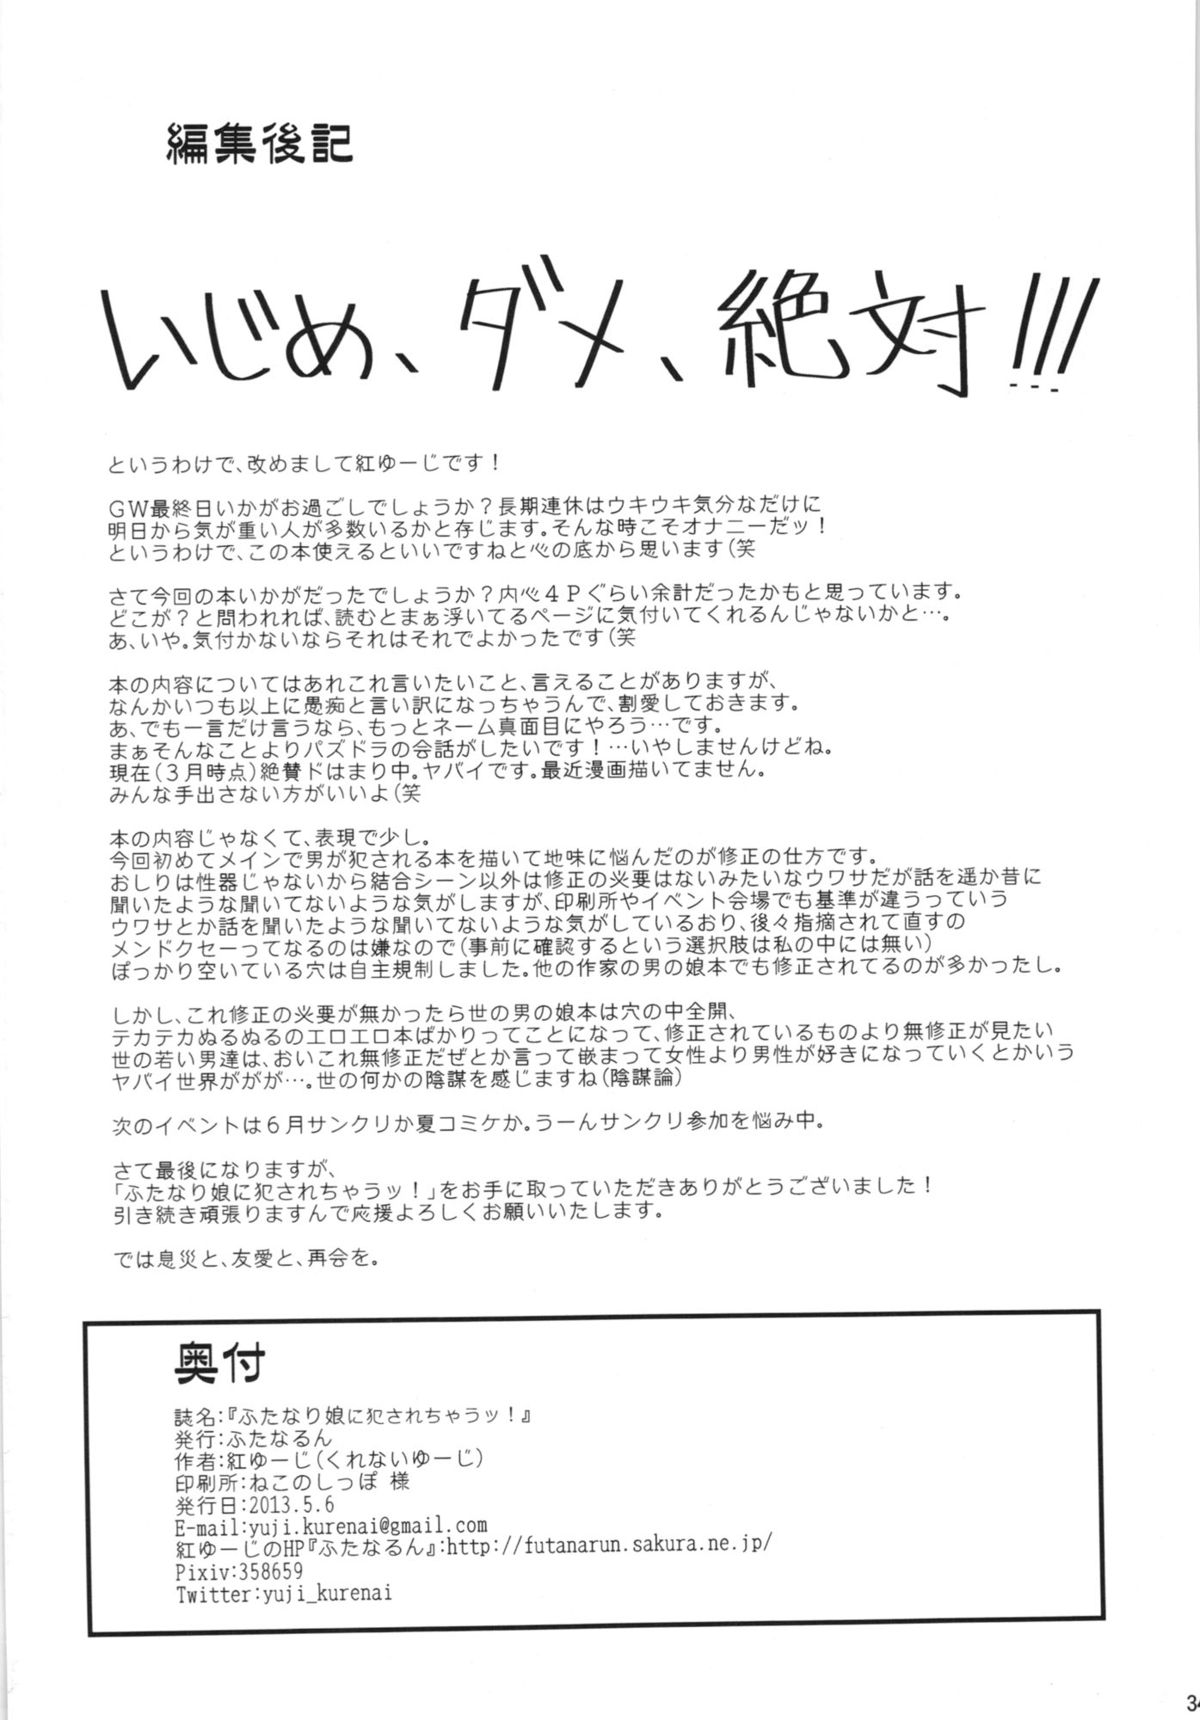 編集後記
いじめ、ダメ、絶対!!!
というわけで、改めまして紅ゆーじです！
ＧＷ最終日いかがお過ごしでしょうか？長期連休はウキウキ気分なだけに
明日から気が重い人が多数いるかと存じます。そんな時こそオナニーだッ！
というわけで、この本使えるといいですねと心の底から思います（笑
さて今回の本いかがだったでしょうか？内心４Ｐぐらい余計だったかもと思っています。
どこが？と問われれば、読むとまぁ浮いてるページに気付いてくれるんじゃないかと…。
あ、いや。気付かないならそれはそれでよかったです（笑
本の内容についてはあれこれ言いたいこと、言えることがありますが、
なんかいつも以上に愚痴と言い訳になっちゃうんで、割愛しておきます。
あ、でも一言だけ言うなら、もっとネーム真面目にやろう…です。
まぁそんなことよりパズドラの会話がしたいです！…いやしませんけどね。
現在（３月時点）絶賛ドはまり中。ヤバイです。最近漫画描いてません。
みんな手出さない方がいいよ（笑
本の内容じゃなくて、表現で少し。
今回初めてメインで男が犯される本を描いて地味に悩んだのが修正の仕方です。
おしりは性器じゃないから結合シーン以外は修正の必要はないみたいなウワサだが話を遥か昔に
聞いたような聞いてないような気がしますが、印刷所やイベント会場でも基準が違うっていう
ウワサとか話を聞いたような聞いてないような気がしているおり、後々指摘されて直すの
メンドクセーってなるのは嫌なので（事前に確認するという選択肢は私の中には無い）
ぽっかり空いている穴は自主規制しました。他の作家の男の娘本でも修正されてるのが多かったし。
しかし、これ修正の必要が無かったら世の男の娘本は穴の中全開、
テカテカぬるぬるのエロエロ本ばかりってことになって、修正されているものより無修正が見たい
世の若い男達は、おいこれ無修正だぜとか言って嵌まって女性より男性が好きになっていくとかいう
ヤバイ世界ががが…。世の何かの陰謀を感じますね（陰謀論）
次のイベントは６月サンクリか夏コミケか。うーんサンクリ参加を悩み中。
さて最後になりますが、
「ふたなり娘に犯されちゃうッ！」をお手に取っていただきありがとうございました！
引き続き頑張りますんで応援よろしくお願いいたします。
では息災と、友愛と、再会を。
奥付
誌名：『ふたなり娘に犯されちゃうッ！』
発行：ふたなるん
作者：紅ゆーじ（くれないゆーじ）
印刷所：ねこのしっぽ 様
発行日：2013.5.6
E-mail:yuji.kurenai@gmail.com
紅ゆーじのHP『ふたなるん』:http://futanarun.sakura.ne.jp/
Pixiv:358659
Twitter:yuji_kurenai
34